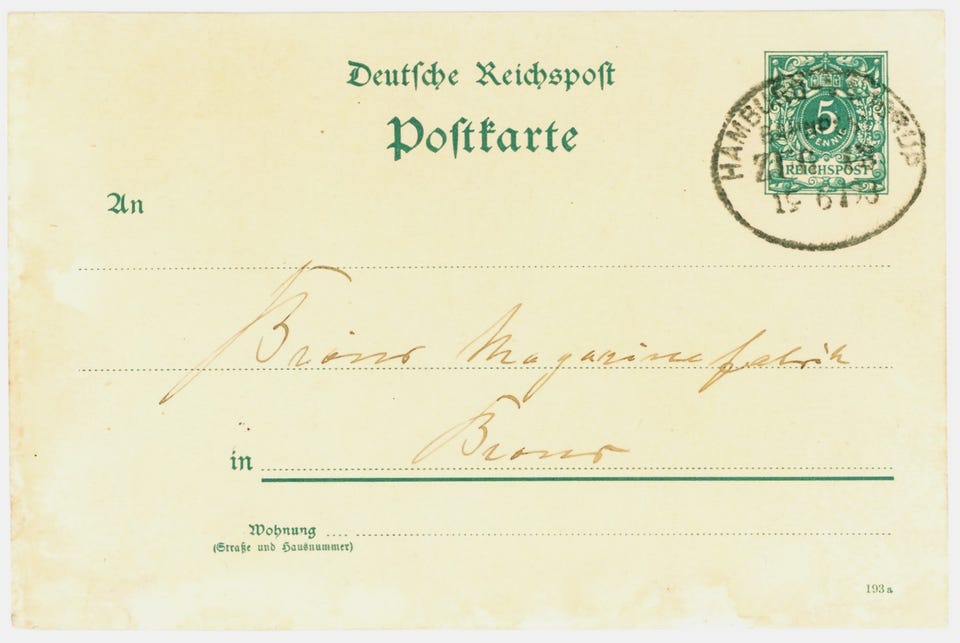 Deutsche Reichspost
Postkarte
5
PFENNIG
REICHSPOST
HAMBURG
An
Bröns Magarinefabrik
in Bröns
Wohnung
(Straße und Hausnummer)
193 a